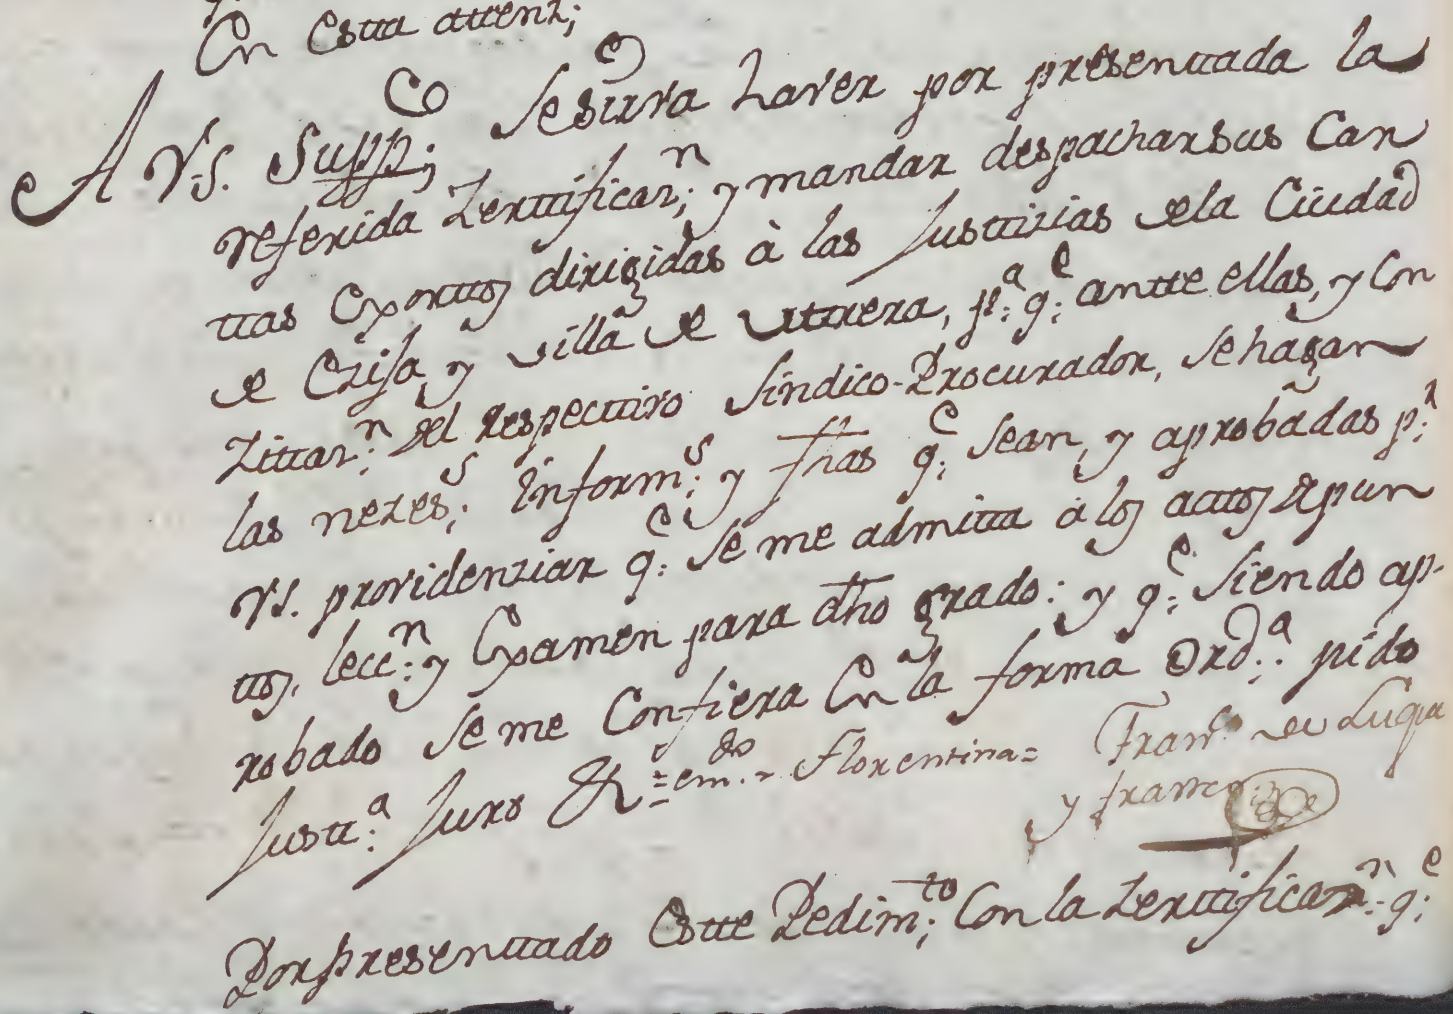 En estta attenz;
A V.S. Supp.co; se sirva haver por presenttada la
referida Zerttificaz.n; y mandar despachar sus Car
ttas exorttos dirigidas à las Justtizias de la Ciudad
de Ezija, y villa de Uttrera, p.a q.e antte ellas, y con
Zittaz.n del respecttivo Síndico-Procurador, se hagan
las nezes.s Inform.s y fhas q.e sean, y aprobadas p.r
VS. providenziar q.e se me admitta à los acttos de pun
ttos, lecc.n y Examen para dho grado: y q.e siendo ap-
robado se me Confiera En la forma Ord.a: pido
Justt.a Juro &= em.do = Florentina= Fran.co de Luque
y franco
Por presenttado estte Pedim.to; Con la Zerttificaz.n q.e